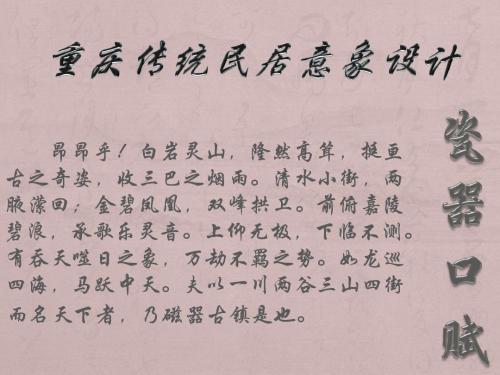 重庆传统民居意象设计
瓷器口赋
昂昂乎！白岩灵山，隆然高耸，挺亘
古之奇姿，收三巴之烟雨。清水小街，两
腋潆回；金碧凤凰，双峰拱卫。前俯嘉陵
碧浪，承歌乐灵音。上仰无极，下临不测。
有吞天噬日之象，万劫不羁之势。如龙巡
四海，马跃中天。夫以一川两谷三山四街
而名天下者，乃磁器古镇是也。